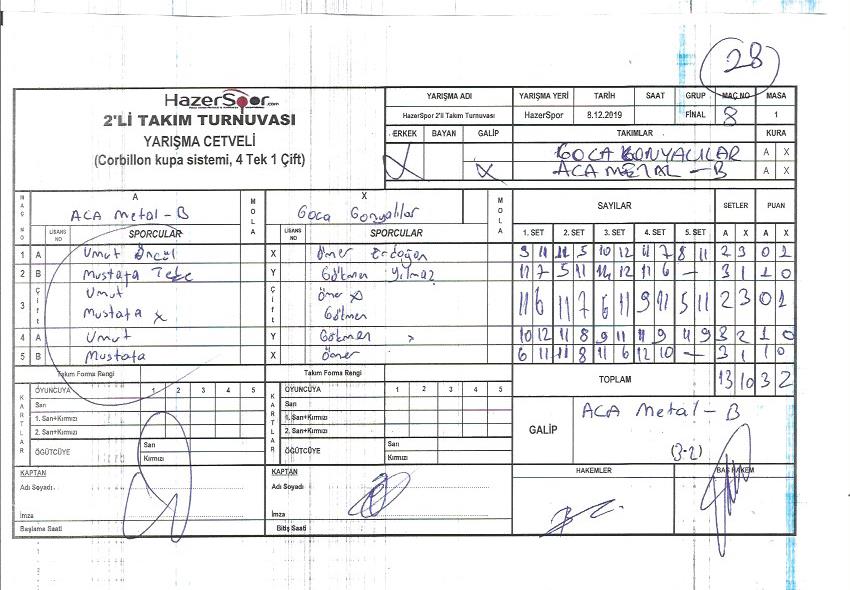 28
HazerSpor.com
2'Lİ TAKIM TURNUVASI
YARIŞMA CETVELİ
(Corbillon kupa sistemi, 4 Tek 1 Çift)
YARIŞMA ADI YARIŞMA YERİ TARİH SAAT GRUP MAÇ NO MASA
HazerSpor 2'li Takım Turnuvası HazerSpor 8.12.2019 FİNAL 8 1
ERKEK BAYAN GALİP TAKIMLAR KURA
GOCA GONYACILAR A X
ACA METAL-B A X
MAÇ NO A MOLA X MOLA SAYILAR SETLER PUAN
ACA Metal-B Goca Gonyalılar
LİSANS NO SPORCULAR LİSANS NO SPORCULAR 1. SET 2. SET 3. SET 4. SET 5. SET A X A X
1 A Umut Öncül X Ömer Erdoğan 9 11 11 5 10 12 11 7 8 11 2 3 0 1
2 B Mustafa Tepe Y Gökmen Yılmaz 11 7 5 11 14 12 11 6 — 3 1 1 0
3 Çift Umut Çift Ömer
Mustafa x Gökmen 11 6 11 7 6 11 9 11 5 11 2 3 0 1
4 A Umut Y Gökmen 10 12 11 8 9 11 11 9 11 9 3 2 1 0
5 B Mustafa X Ömer 6 11 11 8 11 6 12 10 — 3 1 1 0
Takım Forma Rengi Takım Forma Rengi TOPLAM 13 10 3 2
KARTLAR OYUNCUYA 1 2 3 4 5 KARTLAR OYUNCUYA 1 2 3 4 5
Sarı Sarı
1. Sarı+Kırmızı 1. Sarı+Kırmızı
2. Sarı+Kırmızı 2. Sarı+Kırmızı
GALİP ACA Metal-B
(3-2)
ÖĞÜTCÜYE Sarı ÖĞÜTCÜYE Sarı
Kırmızı Kırmızı
KAPTAN KAPTAN HAKEMLER BAŞ HAKEM
Adı Soyadı Adı Soyadı
İmza İmza
Başlama Saati Bitiş Saati